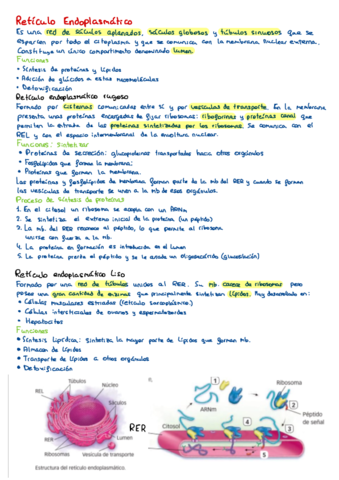 Retículo Endoplasmático
Es una red de sáculos aplanados, sáculos globosos y túbulos sinuosos que se
esparcen por todo el citoplasma y que se comunica con la membrana nuclear externa.
Constituye un único compartimento denominado lumen.
Funciones
• Síntesis de proteínas y lípidos
• Adición de glúcidos a estas macromoléculas
• Detoxificación
Retículo endoplasmático rugoso
Formado por cisternas comunicadas entre sí y por vesículas de transporte. En la membrana
presenta unas proteínas encargadas de fijar ribosomas: riboforinas y proteínas canal que
permiten la entrada de las proteínas sintetizadas por los ribosomas. Se comunica con el
REL y con el espacio intermembranal de la envoltura nuclear.
Funciones: Sintetizar
• Proteínas de secreción: glucoproteínas transportadas hacia otros orgánulos
• Fosfolípidos que forman la membrana;
• Proteínas que forman la membrana.
Las proteínas y fosfolípidos de membrana forman parte de la mb del RER y cuando se forman
las vesículas de transporte se unen a la mb de esos orgánulos.
Proceso de síntesis de proteínas
1. En el citosol un ribosoma se acopla con un ARNm
2. Se sintetiza el extremo inicial de la proteína (un péptido)
3. La mb. del RER reconoce al péptido, lo que permite al ribosoma
unirse con fuerza a la mb.
4. La proteína en formación es introducida en el lumen
5. La proteína pierde el péptido y se le añade un oligosacárido (glucosilación)
Retículo endoplasmático liso
Formado por una red de túbulos unidos al RER. Su mb carece de ribosomas pero
posee una gran cantidad de enzimas que principalmente sintetizan lípidos. Muy desarrollado en:
• Células musculares estriadas (retículo sarcoplásmico)
• Células intersticiales de ovarios y espermatozoides
• Hepatocitos
Funciones
• Síntesis Lipídica: Sintetiza la mayor parte de lípidos que forman mb.
• Almacén de lípidos
• Transporte de lípidos a otros orgánulos
• Detoxificación
Túbulos
Núcleo
REL
Sáculos
RER
Lumen
Ribosomas
Vesícula de transporte
Estructura del retículo endoplasmático
RER
1
Ribosoma
2
ARNm
3
Péptido
de señal
Citosol
4
5